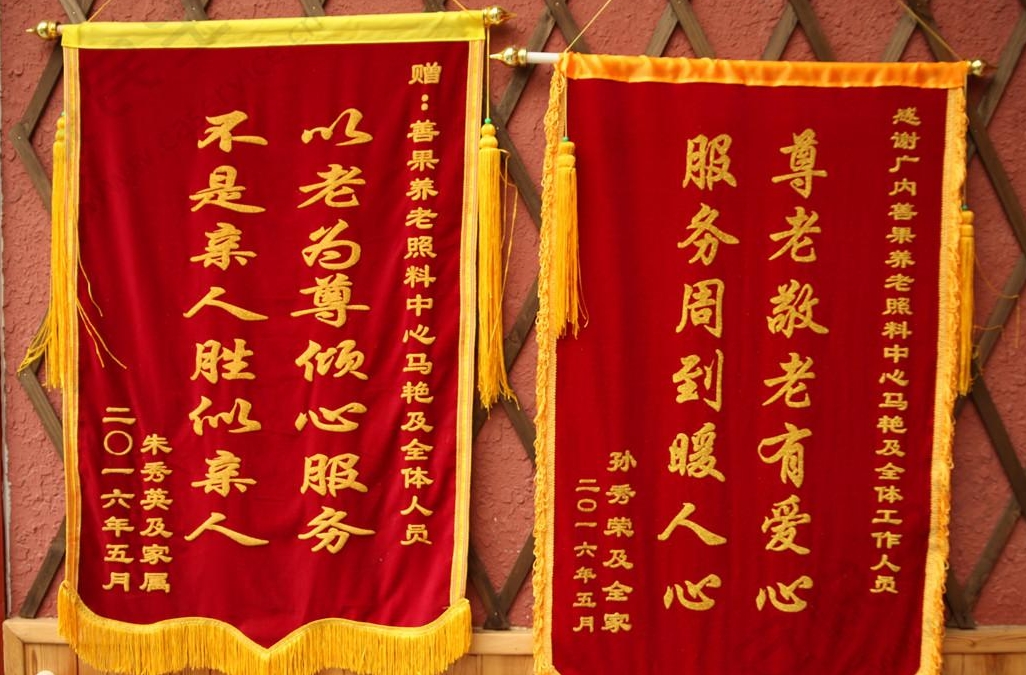 赠：善果养老照料中心马艳及全体人员
以老为尊倾心服务
不是亲人胜似亲人
朱秀英及家属
二〇一六年五月
感谢广内善果养老照料中心马艳及全体工作人员
尊老敬老有爱心
服务周到暖人心
孙秀荣及全家
二〇一六年五月